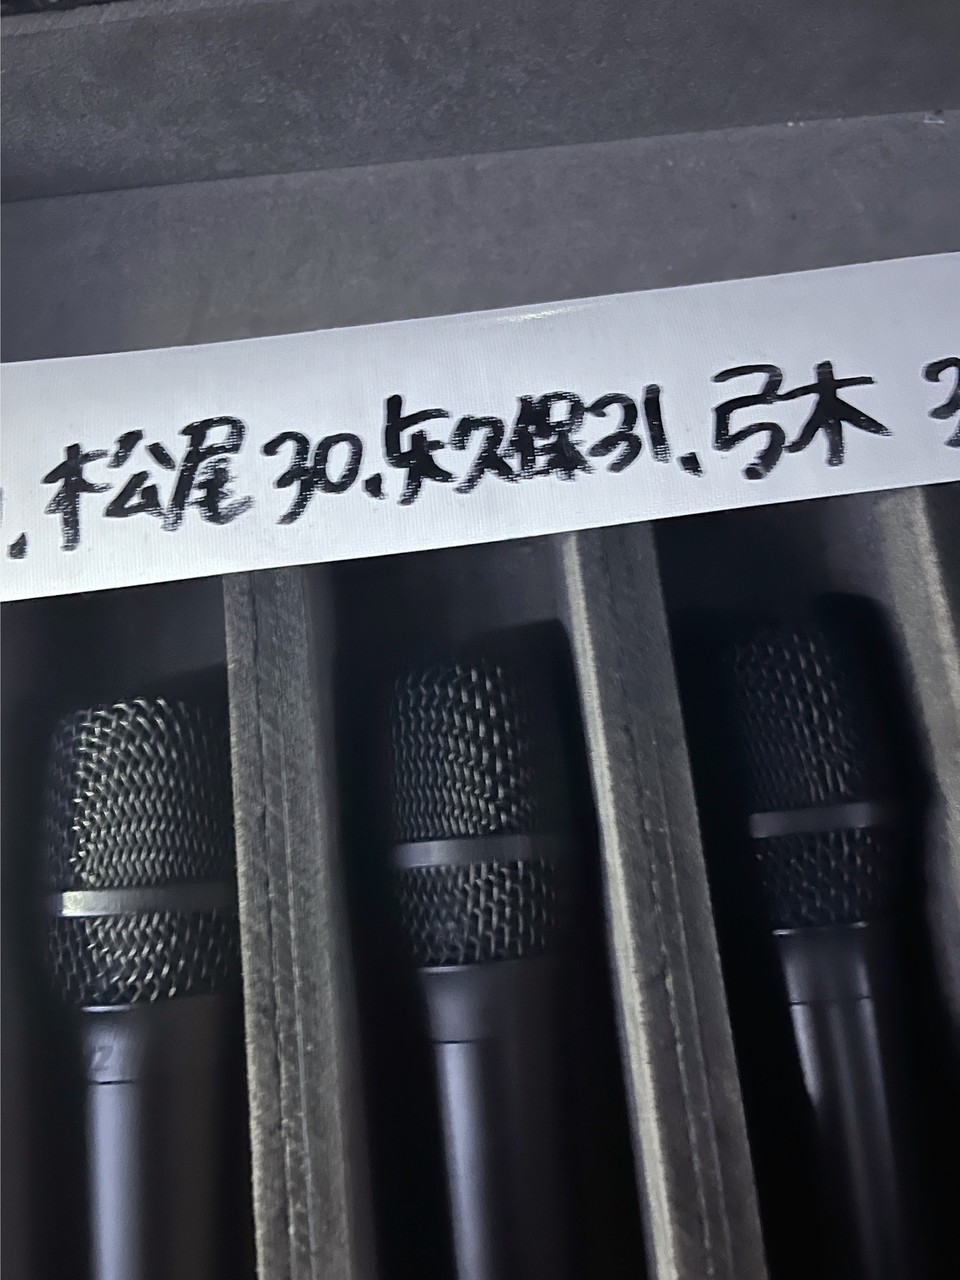 .松尾30.矢久保31.弓木 3